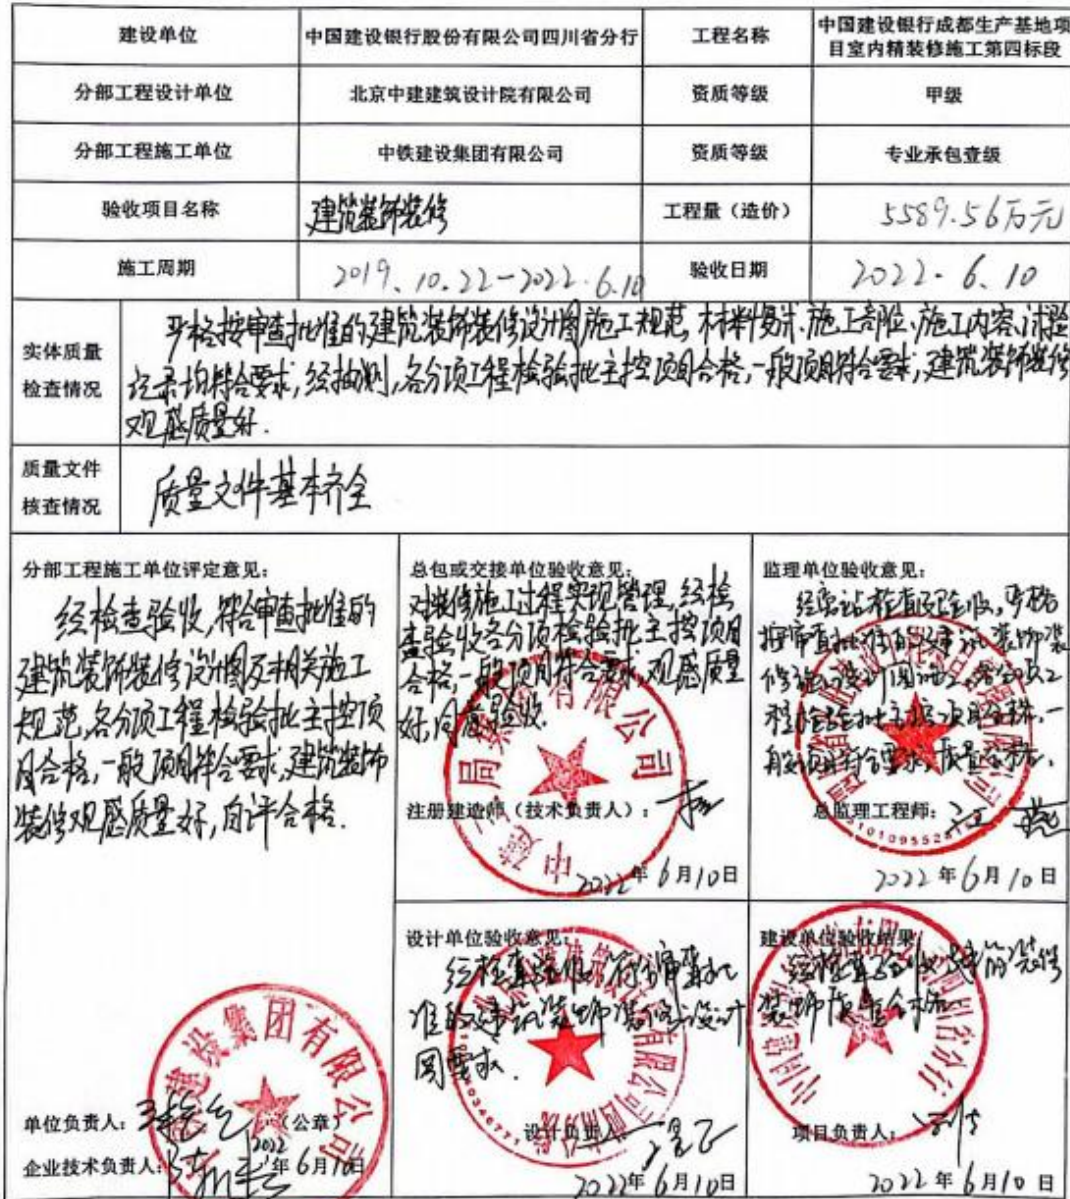 建设单位 中国建设银行股份有限公司四川省分行 工程名称 中国建设银行成都生产基地项
目室内精装修施工第四标段
分部工程设计单位 北京中建建筑设计院有限公司 资质等级 甲级
分部工程施工单位 中铁建设集团有限公司 资质等级 专业承包壹级
验收项目名称 建筑装饰装修 工程量（造价） 5589.56万元
施工周期 2019.10.22-2022.6.10 验收日期 2022.6.10
实体质量
检查情况
严格按审查批准的建筑装饰装修设计图施工规范,材料复试、施工部位、施工内容、试验
记录均符合要求,经抽测,各分项工程检验批主控项目合格,一般项目符合要求,建筑装饰装修
观感质量好.
质量文件
核查情况
质量文件基本齐全
分部工程施工单位评定意见：
经检查验收,符合审查批准的
建筑装饰装修设计图及相关施工
规范,各分项工程检验批主控项
目合格,一般项目符合要求,建筑装饰
装修观感质量好,自评合格.
单位负责人： （公章）
企业技术负责人： 2022年6月10日
总包或交接单位验收意见：
对装修施工过程实现管理,经检
查验收各分项检验批主控项目
合格,一般项目符合要求,观感质量
好,同意验收
注册建造师（技术负责人）：
2022年6月10日
监理单位验收意见：
经实站检查及验收,严格
按审查批准的建筑装饰装
修施工设计图施工,各分项工
程检验批主控项目合格,一
般项目符合要求,质量合格.
总监理工程师：
2022年6月10日
设计单位验收意见：
经检查验收,符合审查批
准的建筑装饰装修设计
图要求.
设计负责人：
2022年6月10日
建设单位验收结果：
经检查验收,建筑装修
装饰质量合格.
项目负责人：
2022年6月10日
建设集团有限公司